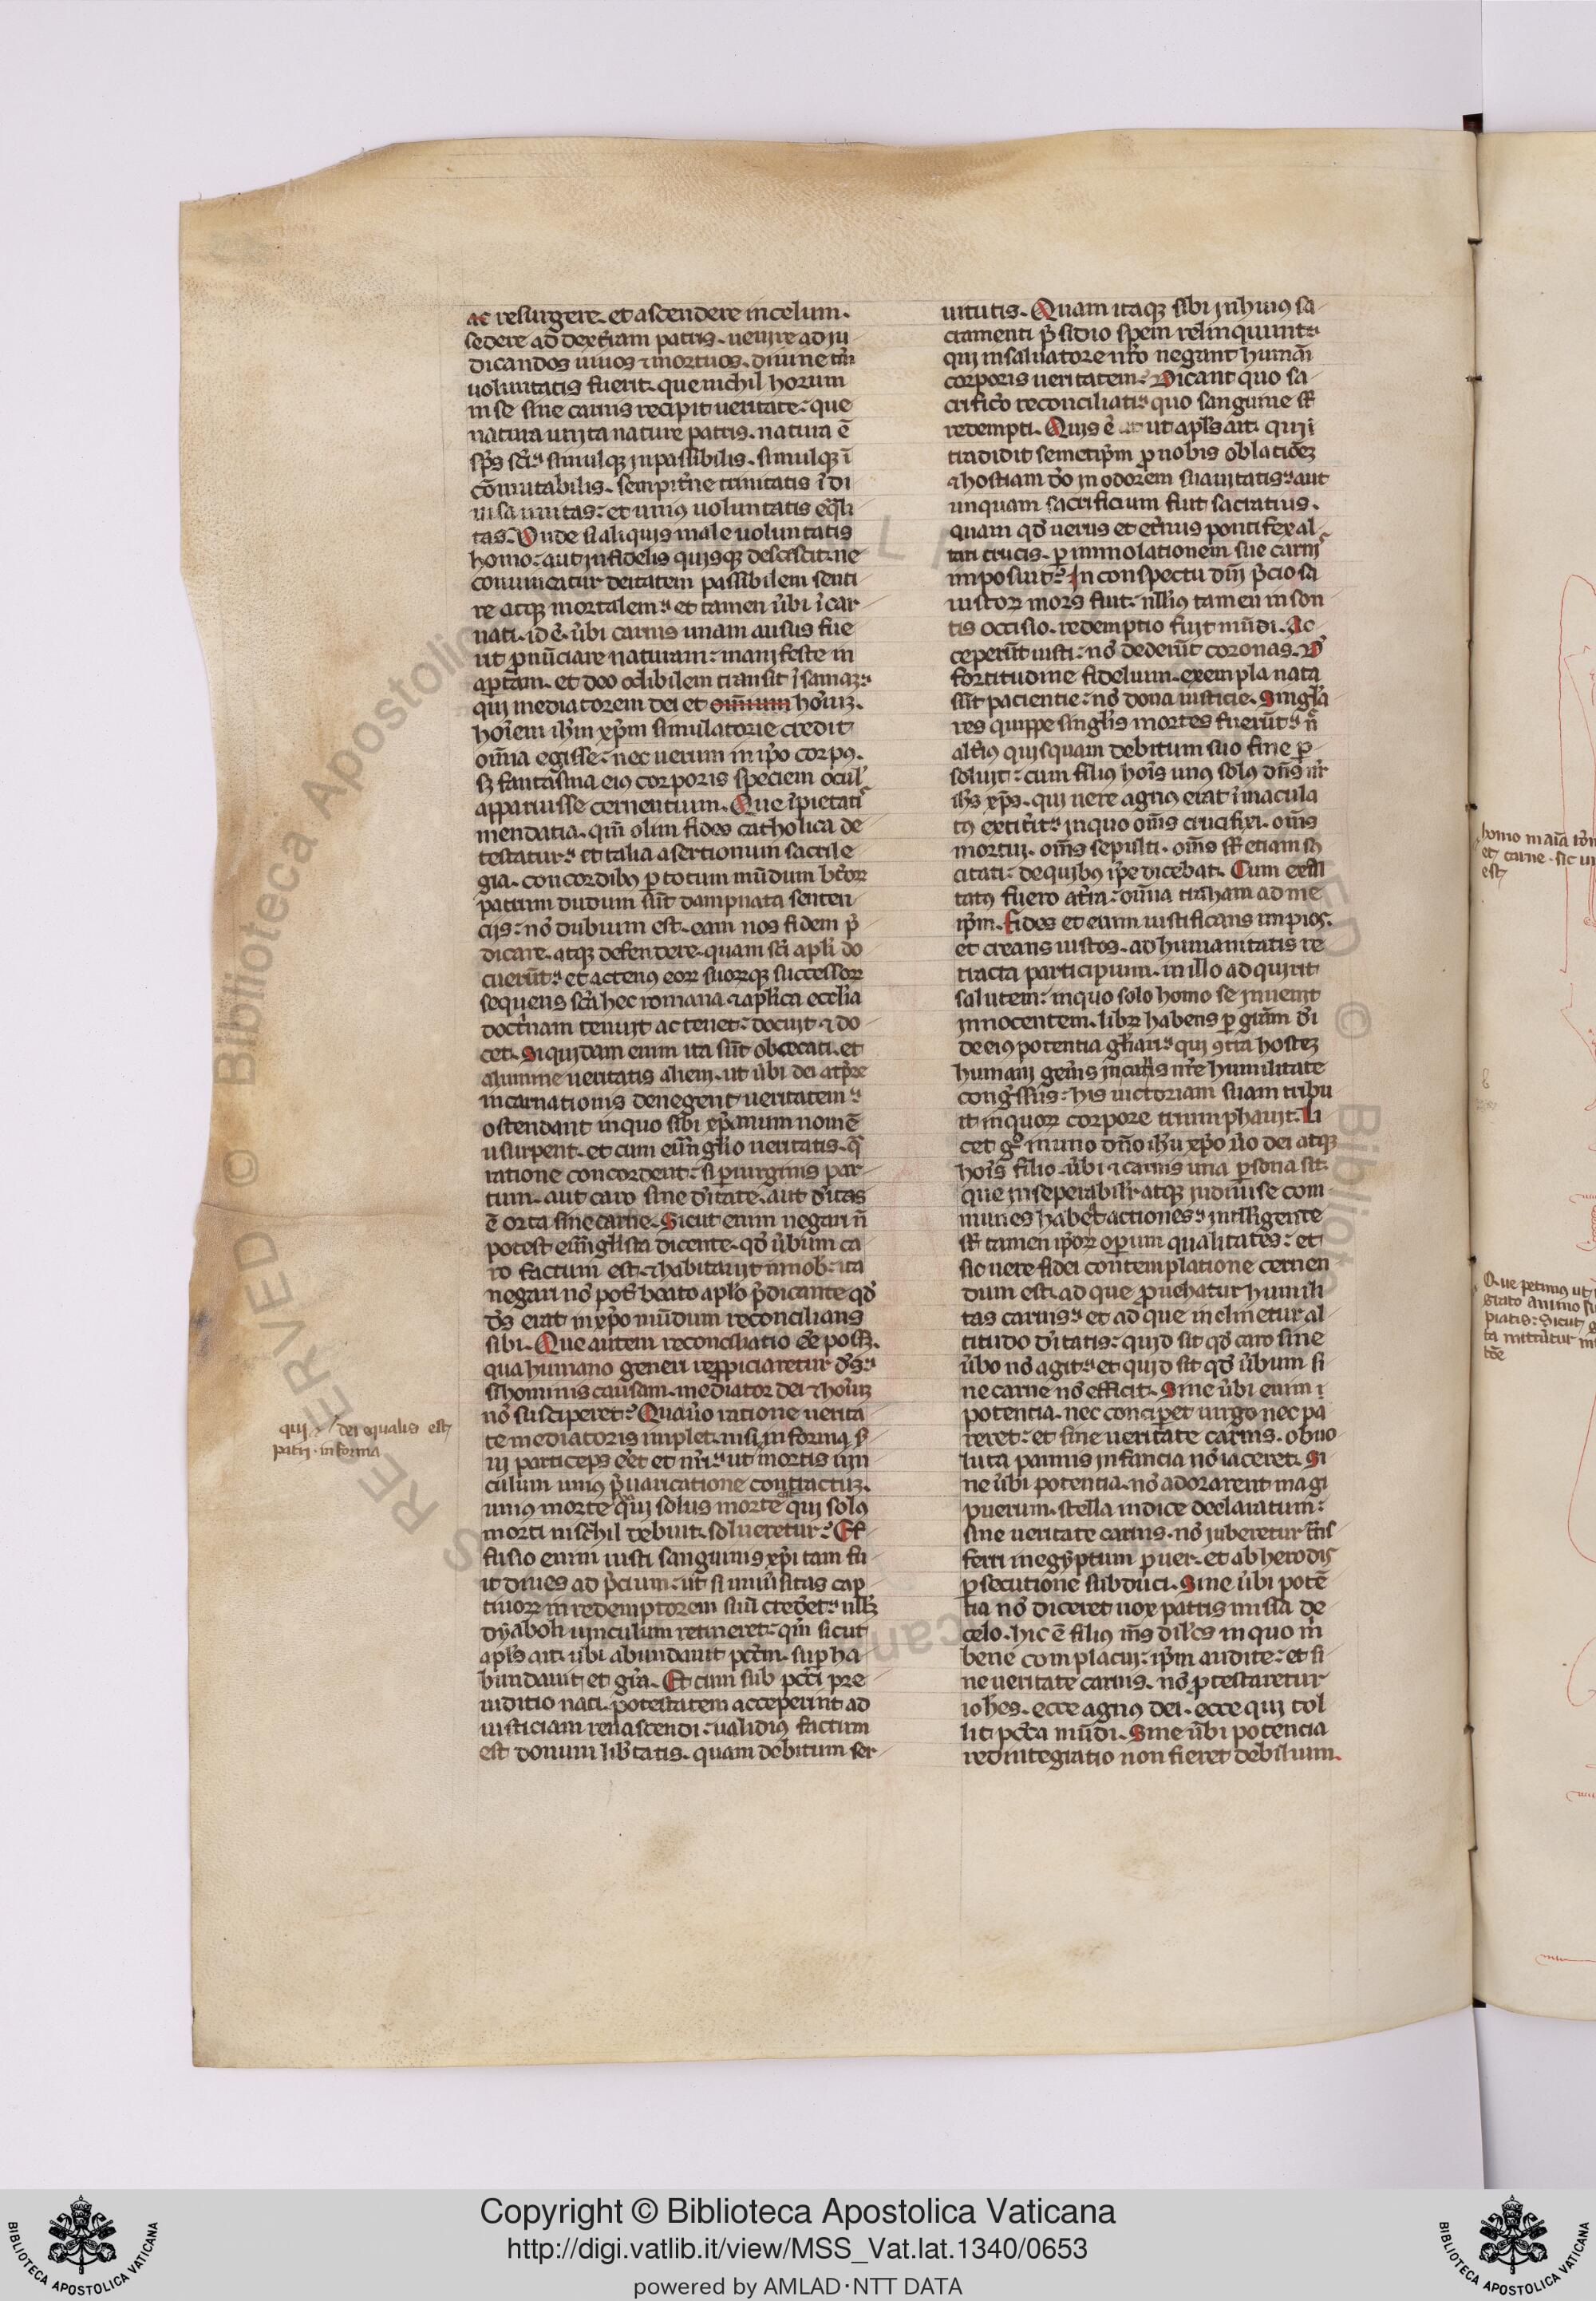 ac resurgere. et ascendere in celum.
sedere ad dext̄am patris. uenire ad iu
dicandos uiuos ⁊ mortuos. diuine tm̄
uoluntatis fuerit. que nichil horum
in se sine carnis recipit ueritate: que
natura unita nature patris. natura ē
sp̄s sc̄i: simulq; inpassibilis. simulq; ī
cōmutabilis. sempit̄ne trinitatis īdi
uisa unitas: et unius uoluntatis eq̄li
tas. Vnde si aliquis male uoluntatis
homo: aut infidelis quisq; desciscit: ne
conuincatur deitatem passibilem senti
re atq; mortalem: et tamen ūbi īcar
nati. id ē. ūbi carnis unam ausus fue
rit p̱nūciare naturam: manifeste in
aptam. et deo odibilem transit ī samaz:
qui mediatorem dei et omnium hoīuz.
hoīem ih̄m xp̄m simulatorie credit
om̄ia egisse: nec uerum in ip̄o corpꝰ.
sꝫ fantasma eius corporis speciem oculꝭ
apparuisse cernentium. Que īpietatꝭ
mendatia. qm̄ olim fides catholica de
testatur: et talia asertionum sacrile
gia. concordibꝰ p totum mūdum bt̄oꝝ
patrum dudum sūt dampnata senten
ciis: nō dubium est. eam nos fidem p̄
dicare. atq; defendere. quam sc̄i apl̄i do
cuerūt: et actenꝰ eoꝝ suoꝝq; successoꝝ
sequens sc̄a hec romana ⁊ apl̄ica eccl̄ia
doct̄nam tenuit ac tenet: docuit ⁊ do
cet. Si quidam enim ita sūt obcecati. et
a lumine ueritatis alieni. ut ūbi dei a tp̄re
incarnationis denegent ueritatem:
ostendant in quo sibi xp̄ianum nomē
usurpent. et cum euāng̅lio ueritatis. q̄
ratione concordent: si p uirginis par
tum. aut caro sine d̄itate. aut d̄itas
ē orta sine carne. Sicut enim negari n̄
potest euāng̅lista dicente. qd̄ ūbum ca
ro factum est. ⁊ habitauit in nob̄: ita
negari nō pot̄ beato apl̄o p̄dicante qd̄
d̄s erat in xp̄o mūdum reconcilians
sibi. Que autem reconciliatio eē poss̄.
qua humano generi repropiciaretur d̄s:
si hominis causam. mediator dei ⁊ hoīuz
nō susciperet: Qua ūo ratione uerita
te mediatoris implet. nisi in forma s̄
ui particeps eēt et nr̄i: ut mortis uin
culum unius p̄uaricatione contractuz.
unius morte qui solus morte qui solꝰ
morti nichil debuit. solueretur: Ef
fusio enim iusti sanguinis xp̄i tam fu
it diues ad p̄cium: ut si uniūsitas cap
tiuoꝝ in redemptorem suū cred̄et: nullꝫ
dyaboli uinculum retineret: qm̄ sicut
apl̄s ait. ubi abundauit pcc̄m. sup ha
bundauit et gr̄a. Et cum sub pcc̄i pre
iuditio nati. potestatem acceperint ad
iusticiam renascendi: ualidiꝰ factum
est donum lib̄tatis. quam debitum ser
qui dei equalis est
patri. in forma
uitutis. Quam itaq; sibi in huiꝰ sa
cramenti p̄sidio spem relinquunt:
qui in saluatore nr̄o negant humāi
corporis ueritatem: Dicant quo sa
crificō reconciliati: quo sanguine sr̄
redempti. Quis ē ut apl̄s ait. qui
tradidit semetip̄m p nobis oblatiōez
⁊ hostiam dō in odorem suauitatis: aut
unquam sacrificium fuit sacratius.
quam qd̄ uerus et et̄nus pontifex al
tari crucis. p immolationem sue carnꝭ
imposuit: In conspectu dn̄i p̄ciosa
iustoꝝ mors fuit: nullꝰ tamen inson
tis occisio. redemptio fuit mūdi. Ac
ceperūt iusti: nō dederūt coronas. D̄
fortitudine fidelium. exempla nata
sūt pacientie: nō dona iusticie. Singla
res quippe singlis mortes fuerūt: n̄
altiꝰ quisquam debitum suo fine p
soluit: cum filius hoīs unꝰ solꝰ dn̄s nr̄
ih̄s xp̄s. qui uere agnꝰ erat īmacula
tꝰ extit̄it: in quo om̄s crucifixi. om̄s
mortui. om̄s sepulti. om̄s sr̄ etiam sus
citati: de quibꝰ ip̄e dicebat. Cum exal
tatꝰ fuero a t̄ra: om̄ia traham ad me
ip̄m. Fides et enim iustificans impios.
et creans iustos. ad humanitatis re
tracta participium. in illo ad quirit
salutem: in quo solo homo se inuenit
innocentem. libꝝ habens p gr̄am d̄i
de eiꝰ potentia gl̄iari: qui 9tra hostez
humani gen̄is in carnis nr̄e humilitate
congr̄ssus: his uictoriam suam tribu
it in quoꝝ corpore triumphauit. Li
cet g° in uno dn̄o ih̄u xp̄o ūo dei atq;
hoīs filio. ūbi ⁊ carnis una psona sit.
que inseperabilr̄ atq; indiuise com
munes habet actiones: intelligente
sr̄ tamen ip̄oꝝ opum qualitates: et
sic uere fidei contemplatione cernen
dum est. ad que puehatur humili
tas carnis: et ad que inclinetur al
titudo d̄itatis: quid sit qd̄ caro sine
ūbo nō agit: et quid sit qd̄ ūbum si
ne carne nō efficit. Sine ūbi enim
potentia. nec concipet uirgo nec pa
reret: et sine ueritate carnis. obuo
luta pannis infancia nō iaceret. Si
ne ūbi potencia. nō adorarent magi
puerum. stella indice declaratum:
sine ueritate carnis. nō iuberetur t̄ns
ferri in egyptum puer. et ab herodis
psecutione subduci. Sine ūbi potē
tia nō diceret uox patris missa de
celo. hic ē filiꝰ m̄s dil̄cs in quo m̄
bene complacui: ip̄m audite: et si
ne ueritate carnis. nō ptestaretur
ioh̄es. ecce agnꝰ dei. ecce qui tol
lit pcc̄a mūdi. Sine ūbi potencia
redintegratio non fieret debilium.
Copyright © Biblioteca Apostolica Vaticana
http://digi.vatlib.it/view/MSS_Vat.lat.1340/0653
powered by AMLAD·NTT DATA
BIBLIOTECA APOSTOLICA VATICANA
BIBLIOTECA APOSTOLICA VATICANA